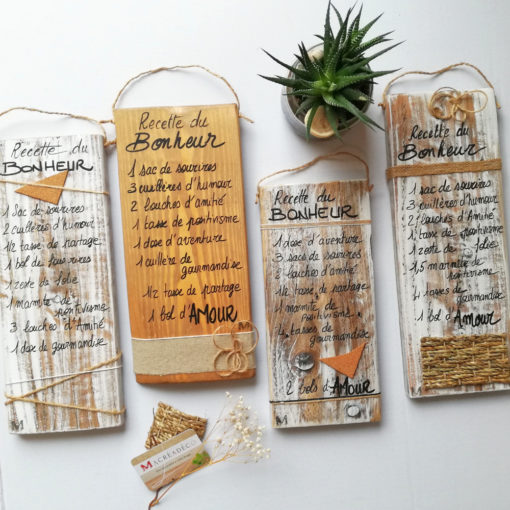 Recette du
BONHEUR
1 sac de sourires
2 cuillères d'humour
1/2 tasse de partage
1 bol de fous rires
1 zeste de folie
1 marmite de positivisme
3 louches d'Amitié
1 dose de gourmandise
Recette du
Bonheur
1 sac de sourires
3 cuillères d'humour
2 louches d'amitié
1 tasse de positivisme
1 dose d'aventure
1 cuillère de
gourmandise
1/2 tasse de partage
1 bol d'AMOUR
M
Recette du
BONHEUR
1 dose d'aventure
3 sacs de sourires
2 louches d'amitié
1/2 tasse de partage
1 marmite de
positivisme
tasses de
gourmandise
2 bols d'AMOUR
M
Recette du
Bonheur
1 sac de sourires
3 cuillères d'humour
2 louches d'Amitié
1 tasse de positivisme
1 zeste de folie
1,5 marmite de
tasses de
gourmandise
1 bol d'AMOUR
MACREADÉCO